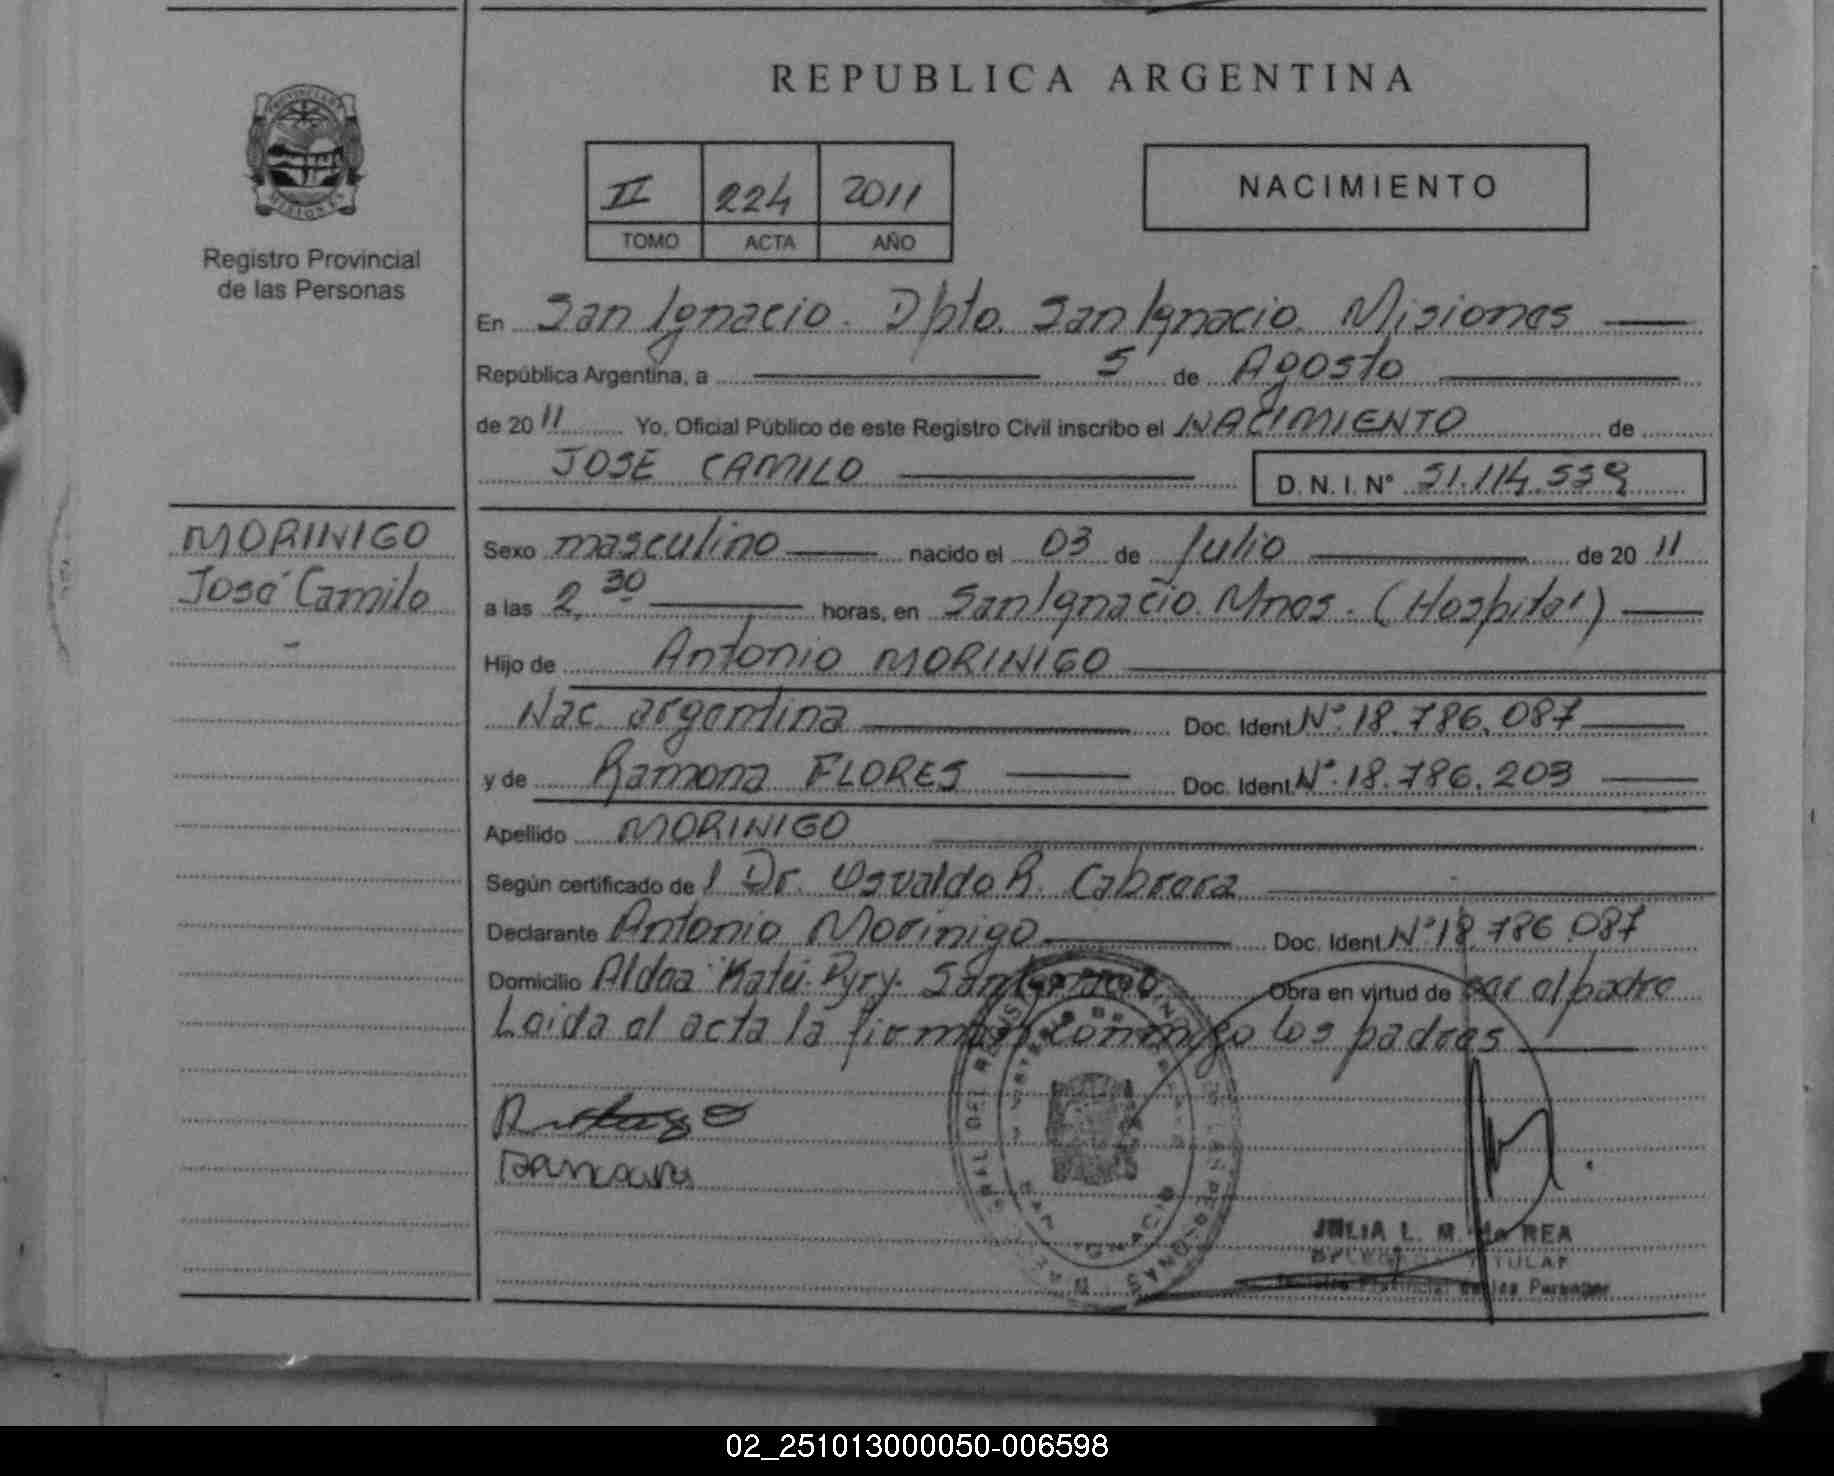 REPUBLICA ARGENTINA
PROVINCIA DE MISIONES
Registro Provincial
de las Personas
II 224 2011
TOMO ACTA AÑO
NACIMIENTO
En San Ignacio. Dpto. San Ignacio. Misiones
República Argentina, a 5 de Agosto
de 2011 Yo, Oficial Público de este Registro Civil inscribo el NACIMIENTO de
JOSE CAMILO D.N.I. N° 51.114.539
MORINIGO
José Camilo
Sexo masculino nacido el 03 de Julio de 2011
a las 2,30 horas, en San Ignacio. Mnes. (Hospital)
Hijo de Antonio MORINIGO
Nac. argentina Doc. Ident. N°. 18.786.087
y de Ramona FLORES Doc. Ident. N°. 18.786.203
Apellido MORINIGO
Según certificado de l Dr. Osvaldo R. Cabrera
Declarante Antonio Morinigo Doc. Ident. N° 18.786.087
Domicilio Aldea Katú-Pyry. San Ignacio. Obra en virtud de ser el padre
Leida el acta la firman conmigo los padres
JULIA L. M. de REA
TITULAR
Registro Provincial de las Personas
02_251013000050-006598